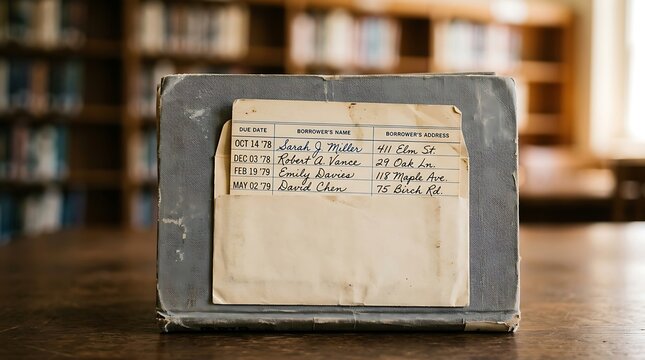 DUE DATE BORROWER'S NAME BORROWER'S ADDRESS
OCT 14 '78 Sarah J Miller 411 Elm St.
DEC 03 '78 Robert A. Vance 29 Oak Ln.
FEB 19 '79 Emily Davies 118 Maple Ave.
MAY 02 '79 David Chen 75 Birch Rd.